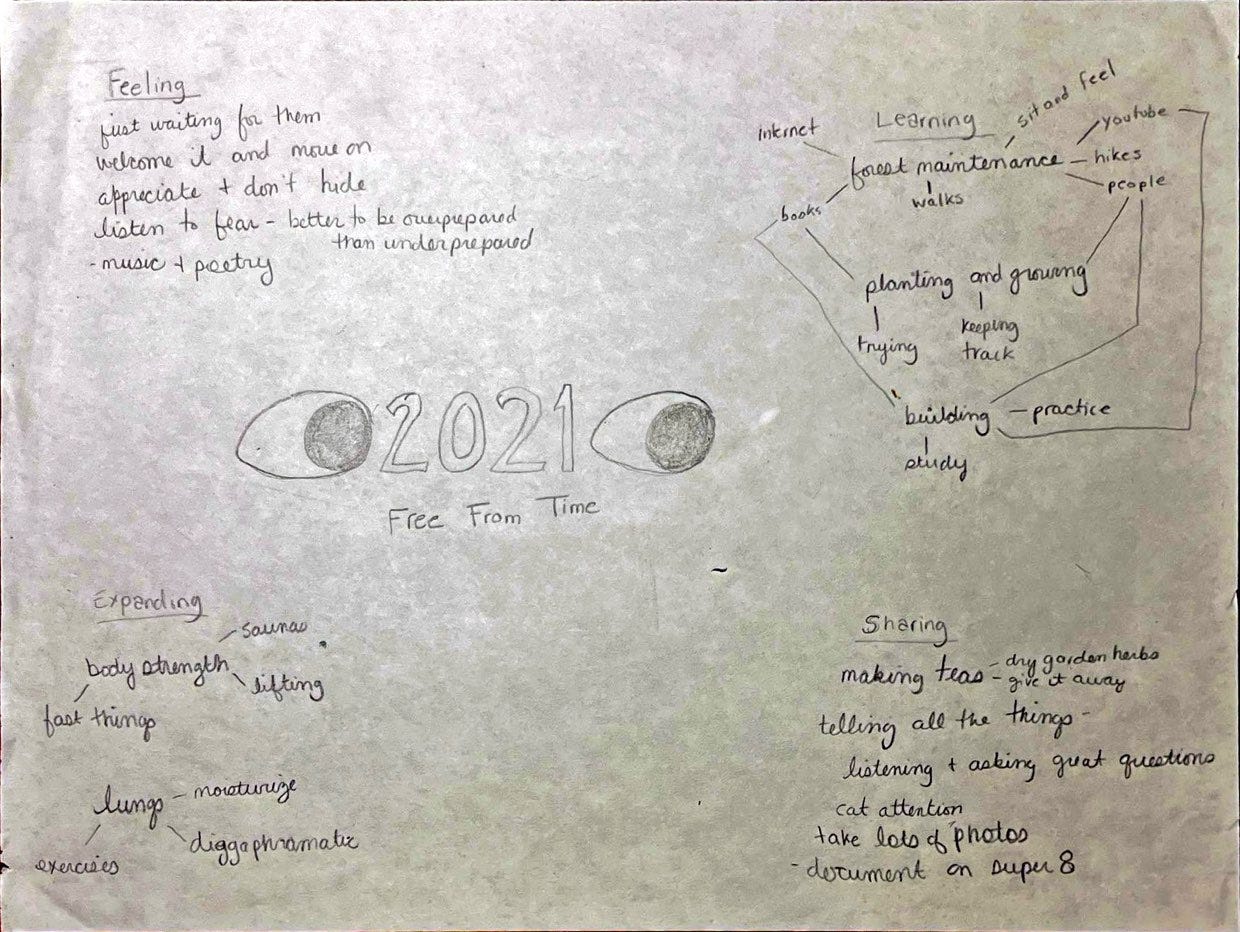 Feeling
just waiting for them
welcome it and move on
appreciate + don't hide
listen to fear - better to be overprepared
than underprepared
- music + poetry
Learning
internet
sit and feel
youtube
forest maintenance
hikes
people
walks
books
planting and growing
trying
keeping
track
building - practice
study
2021
Free From Time
Expanding
saunas
body strength
lifting
fast things
lungs - moisturize
diggaphramatic
exercises
Sharing
making teas - dry garden herbs
- give it away
telling all the things -
listening + asking great questions
cat attention
take lots of photos
- document on super 8